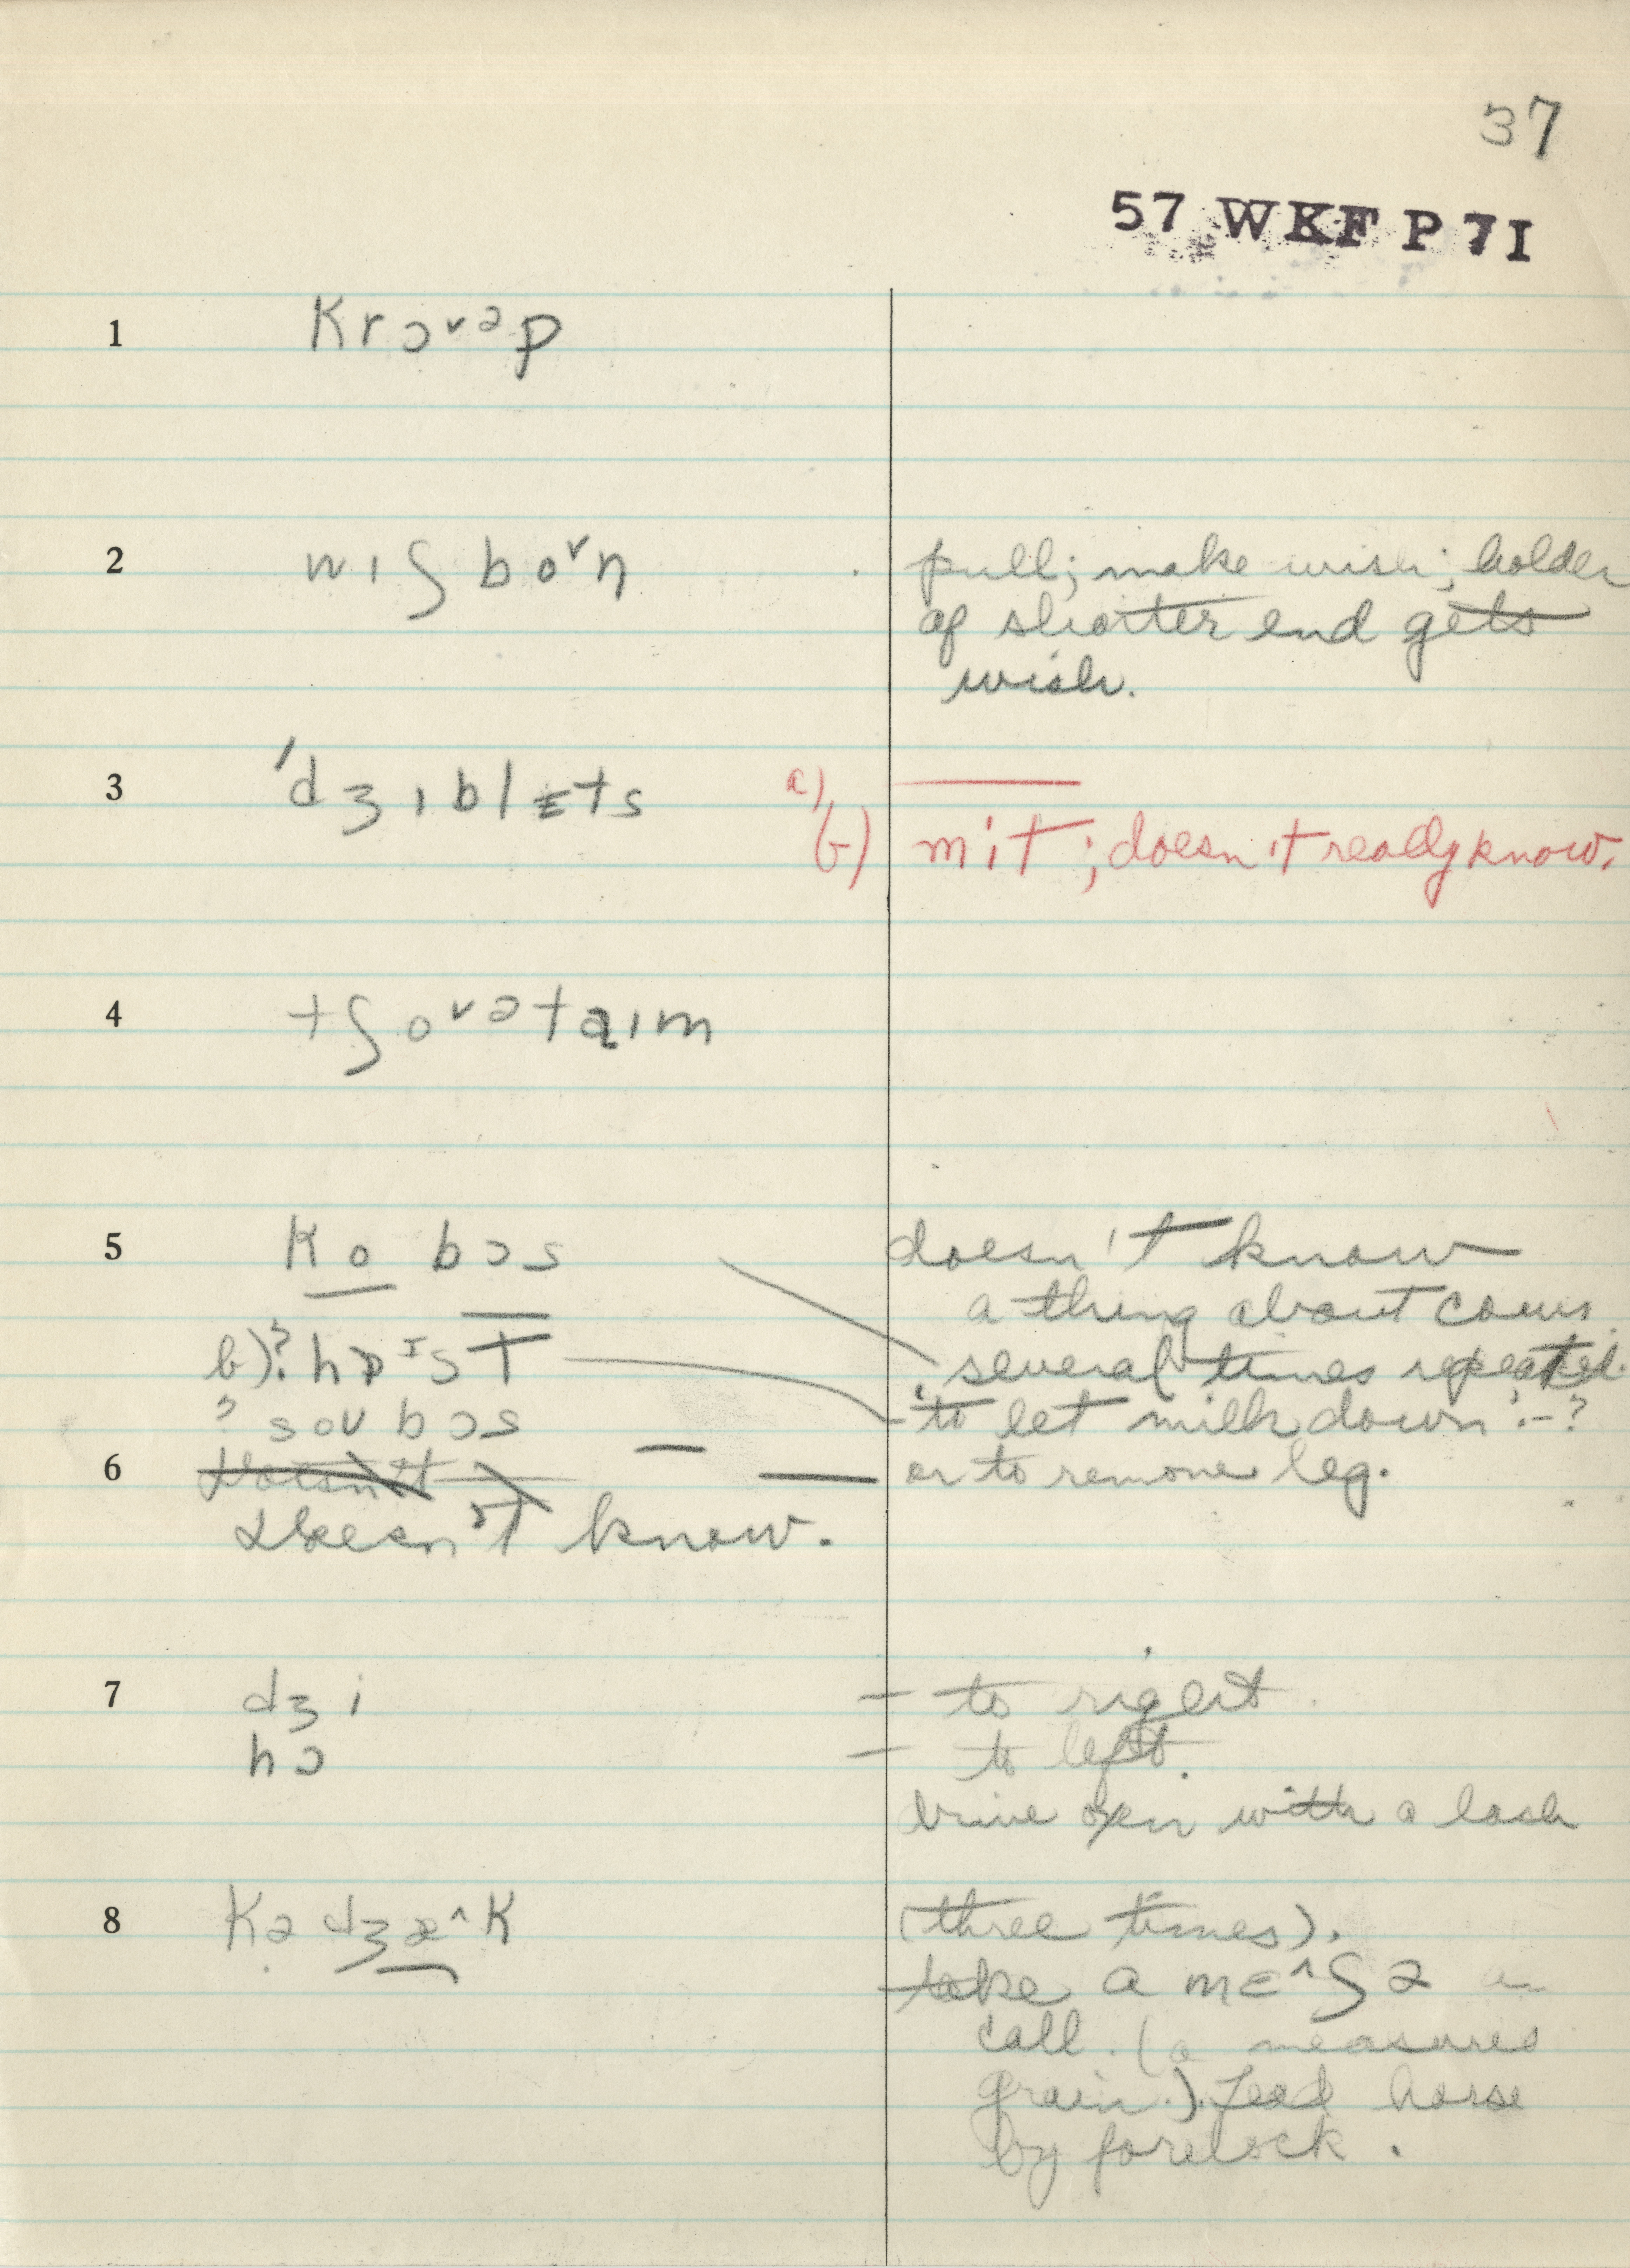 37
57 WKF P 7I
1 Krɔ˅ᵊp
2 wɪʃ bo˅n pull; make wish; holder
of shorter end gets
wish.
3 ˈdʒɪblɛts a) ——
b) mit; doesn't really know.
4 tʃo˅ᵊtaɪm
5 Ko bɔs doesn't know
a thing about cows.
b)? hɒᴵst several times repeated.
? soʊ bɔs - to let milk down :-?
6 Doesn't — or to remove leg.
Doesn't know.
7 dʒi - to right.
hɔ - to left.
drive oxen with a lash
8 Kə dʒæ^K (three times).
take a mɛ^ʃə
call. (a measured
grain.) Lead horse
by forelock.